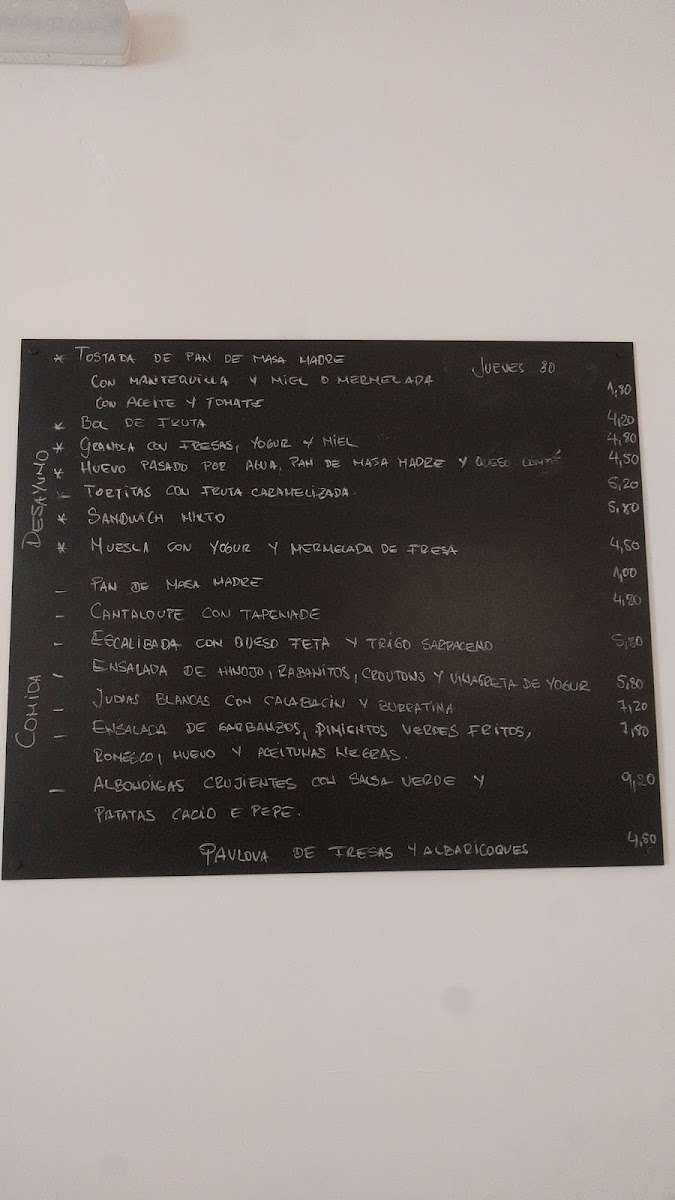 * TOSTADA DE PAN DE MASA MADRE
JUEVES 30
CON MANTEQUILLA Y MIEL O MERMELADA 1,80
CON ACEITE Y TOMATE
* BOL DE FRUTA 4,20
* GRANOLA CON FRESAS, YOGUR Y MIEL 4,80
* HUEVO PASADO POR AGUA, PAN DE MASA MADRE Y QUESO COMTÉ 4,50
- TORTITAS CON FRUTA CARAMELIZADA. 5,20
* SANDWICH MIXTO 5,80
* MUESLA CON YOGUR Y MERMELADA DE FRESA 4,50
DESAYUNO
- PAN DE MASA MADRE 1,00
- CANTALOUPE CON TAPENADE 4,80
- ESCALIBADA CON QUESO FETA Y TRIGO SARRACENO 5,80
- ENSALADA DE HINOJO, RABANITOS, CROUTONS Y VINAGRETA DE YOGUR 5,80
- JUDIAS BLANCAS CON CALABACIN Y BURRATINA 7,20
- ENSALADA DE GARBANZOS, PIMIENTOS VERDES FRITOS, 7,80
ROMESCO, HUEVO Y ACEITUNAS NEGRAS.
- ALBONDIGAS CRUJIENTES CON SALSA VERDE Y 9,20
PATATAS CACIO E PEPE.
COMIDA
PAVLOVA DE FRESAS Y ALBARICOQUES 4,80